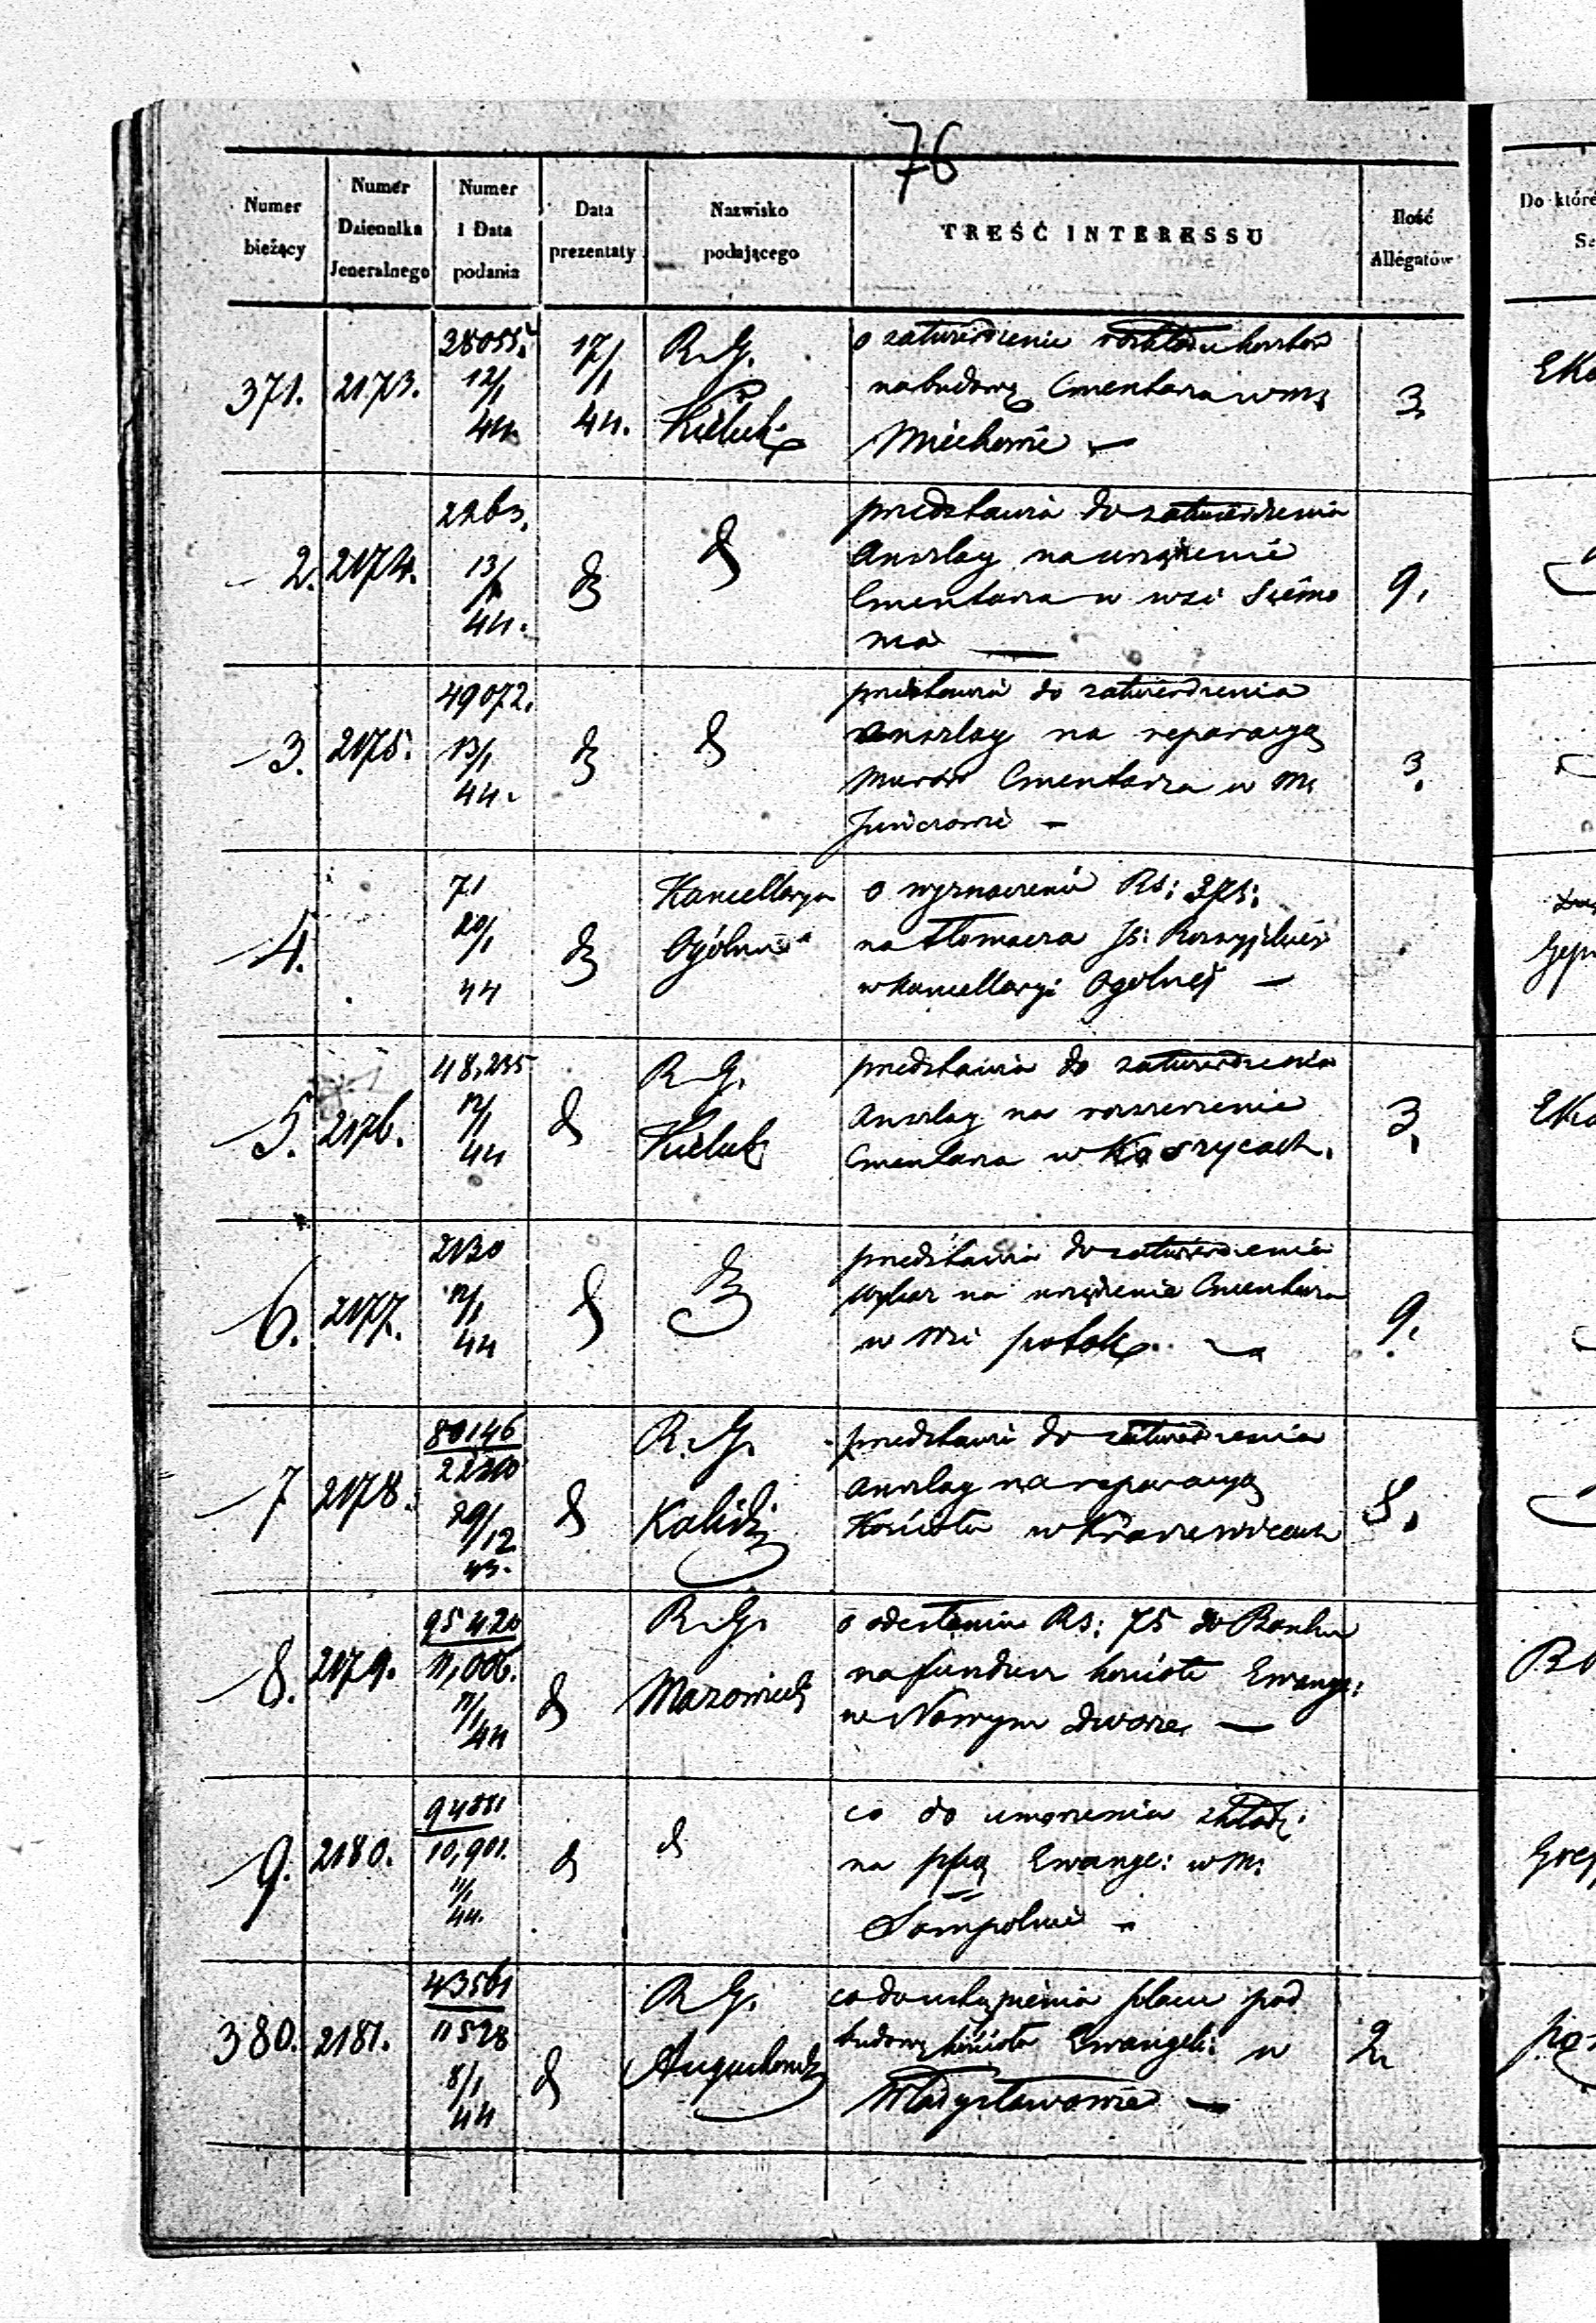 76
Numer bieżący
Numer Dziennika Jeneralnego
Numer i Data podania
Data prezentaty
Nazwisko podającego
TREŚĆ INTERESSU
Ilość Allegatów
Do które
371. 2173. 28055. 12/1 44. 17/1 44. R. G. Kielck. 3.
o zatwierdzenie rozkładu kosztów
na budowę Cmentarza w m.
Miechowie —
2. 2174. 2263. 13/1 44. 9.
przedstawia do zatwierdzenia
Anszlag na urządzenie
Cmentarza w wsi Siemo
nia —
3. 2175. 49072. 13/1 44. 3.
przedstawia do zatwierdzenia
anszlag na reparacyą
Murów Cmentarza w M.
—
4. 71 20/1 44 Kancellarya Ogólna
o wyznaczenie Rs:
na tłomacza Js:
w Kancellaryi Ogólnej —
5. 2176. 48,235 12/1 44 R. G. Kielck 3.
przedstawia do zatwierdzenia
Anszlag na rozszerzenie
Cmentarza w Koszycach.
6. 2177. 2130 12/1 44 9.
przedstawia do zatwierdzenia
wykaz na urządzenie Cmentarza
w wsi potok.
7 2178. 80146 29/12 43. R. G. Kalisk 8.
przedstawia do zatwierdzenia
anszlag na reparacyą
Kościoła w
8. 2179. 95420 11,006. 11/1 44 R. G. Mazowieck
o odesłanie Rs: 75 do Banku
na fundusz kościoła Ewange:
w Nowym dworze —
9. 2180. 10,901. 11/1 44.
co do umorzenia składk:
na Ewange: w M.
Sompolnie —
380. 2181. 43561 11528 8/1 44 R. G. Augustowsk 2
co do ustąpienia placu pod
budowę kościoła Ewangeli: w
Władysławowie —